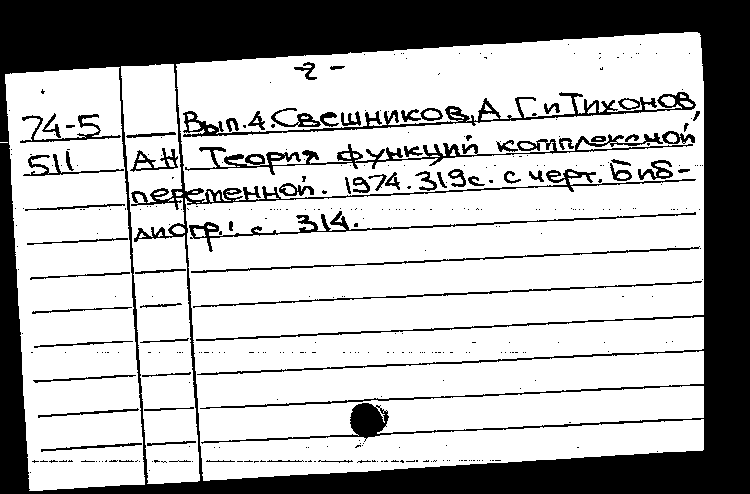 -2-
74-5 Вып.4. Свешников, А.Г. и Тихонов,
511 А.Н. Теория функций комплексной
переменной. 1974. 319с. с черт. Биб-
лиогр.: с. 314.